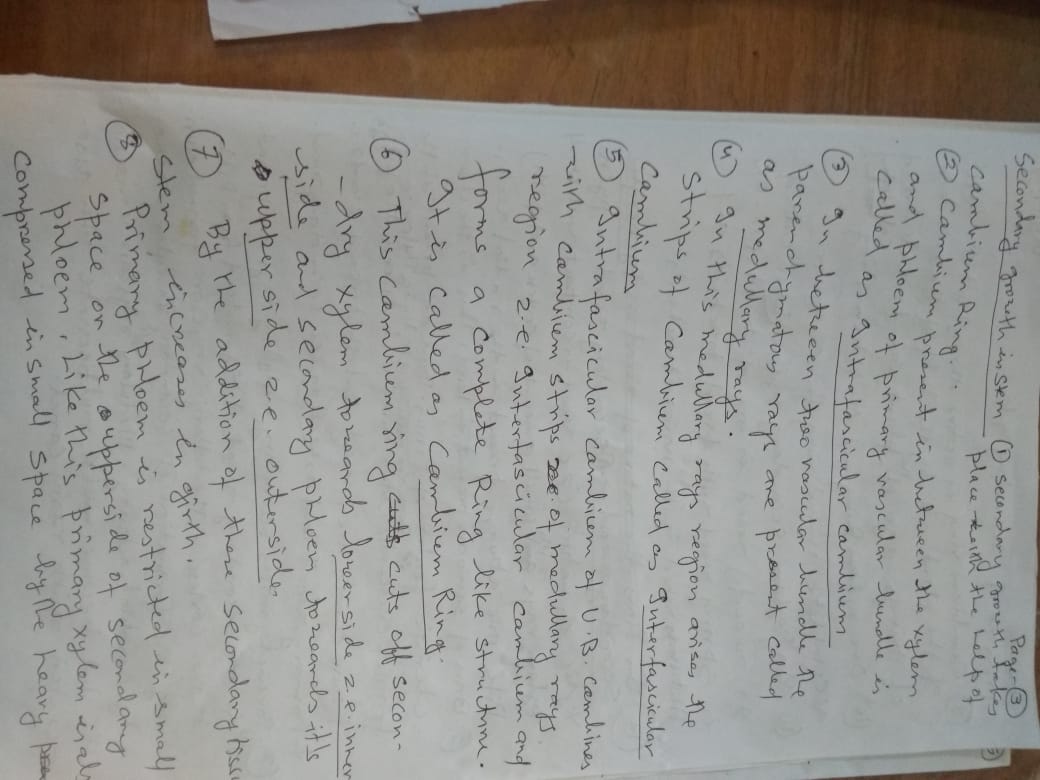 Page-3
Secondary growth in stem ① Secondary growth takes
place with the help of
cambium Ring.
② Cambium present in between the xylem
and phloem of primary vascular bundle is
called as Intrafascicular cambium
③ In between two vascular bundle the
parenchymatous rays are present called
as medullary rays.
④ In this medullary rays region arises the
strips of Cambium called as Interfascicular
Cambium
⑤ Intrafascicular cambium of V.B. combines
with cambium strips of medullary rays
region i.e. Interfascicular cambium and
forms a complete Ring like structure.
It is called as Cambium Ring.
⑥ This cambium ring cuts off secon-
-dry xylem towards lowerside i.e. inner
side and secondary phloem towards it's
upperside i.e. outerside.
⑦ By the addition of these secondary tissu
stem increases in girth.
⑧ Primary phloem is restricted in small
space on the upperside of secondary
phloem. Like this primary xylem is als
compressed in small space by the heavy